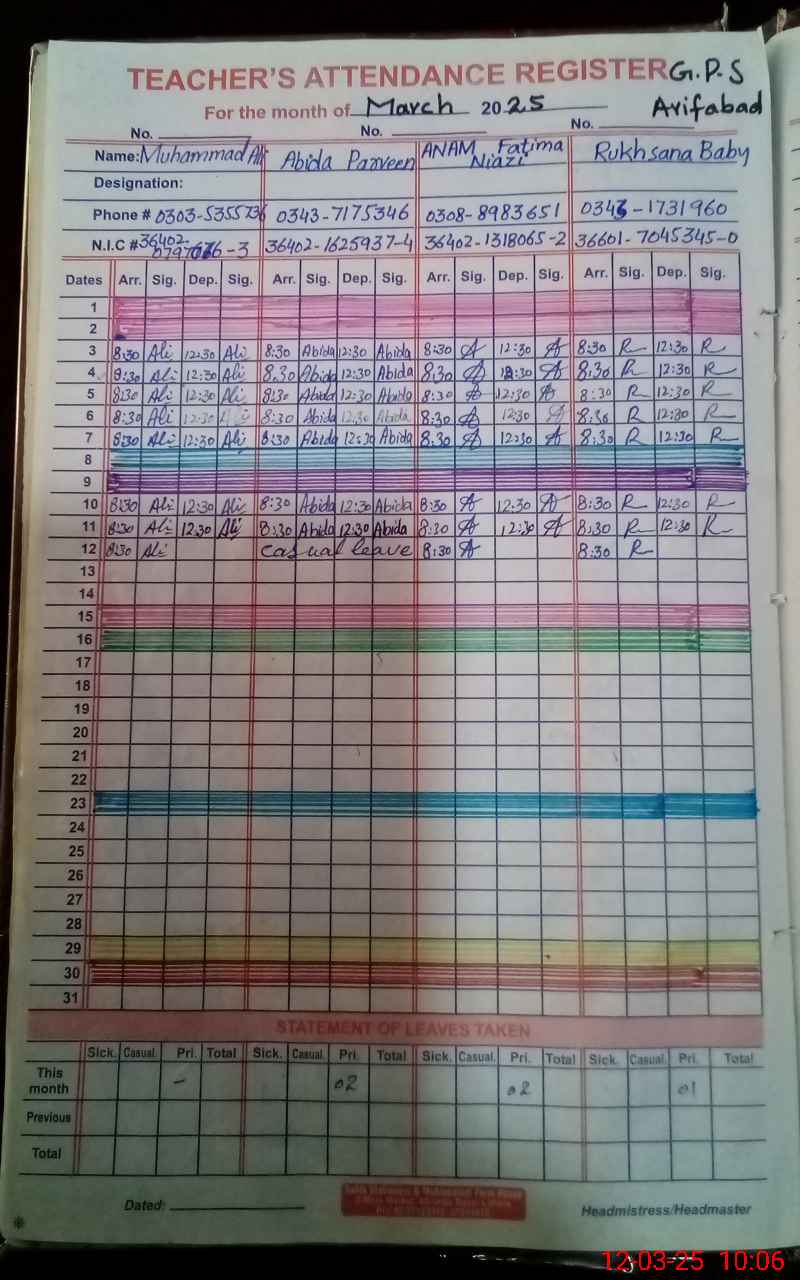 TEACHER'S ATTENDANCE REGISTER G.P.S
For the month of March 2025 Arifabad
No. No. No.
Name: Muhammad Ali Abida Parveen ANAM Fatima Niazi Rukhsana Baby
Designation:
Phone # 0303-5355736 0343-7175346 0308-8983651 0343-1731960
N.I.C # 36402- 36402-1625937-4 36402-1318065-2 36601-7045345-0
Dates Arr. Sig. Dep. Sig. Arr. Sig. Dep. Sig. Arr. Sig. Dep. Sig. Arr. Sig. Dep. Sig.
1
2
3 8:30 Ali 12:30 Ali 8:30 Abida 12:30 Abida 8:30 A 12:30 A 8:30 R 12:30 R
4 8:30 Ali 12:30 Ali 8:30 Abida 12:30 Abida 8:30 A 12:30 A 8:30 R 12:30 R
5 8:30 Ali 12:30 Ali 8:30 Abida 12:30 Abida 8:30 A 12:30 A 8:30 R 12:30 R
6 8:30 Ali 12:30 Ali 8:30 Abida 12:30 Abida 8:30 A 12:30 A 8:30 R 12:30 R
7 8:30 Ali 12:30 Ali 8:30 Abida 12:30 Abida 8:30 A 12:30 A 8:30 R 12:30 R
8
9
10 8:30 Ali 12:30 Ali 8:30 Abida 12:30 Abida 8:30 A 12:30 A 8:30 R 12:30 R
11 8:30 Ali 12:30 Ali 8:30 Abida 12:30 Abida 8:30 A 12:30 A 8:30 R 12:30 R
12 8:30 Ali casual leave 8:30 A 8:30 R
13
14
15
16
17
18
19
20
21
22
23
24
25
26
27
28
29
30
31
STATEMENT OF LEAVES TAKEN
Sick. Casual. Pri. Total Sick. Casual. Pri. Total Sick. Casual. Pri. Total Sick. Casual. Pri. Total
This month - 02 02 01
Previous
Total
Dated: Headmistress/Headmaster
12-03-25 10:06